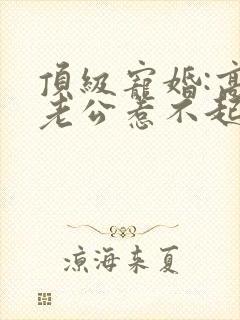 頂級寵婚:高
老公惹不起
涼海來夏